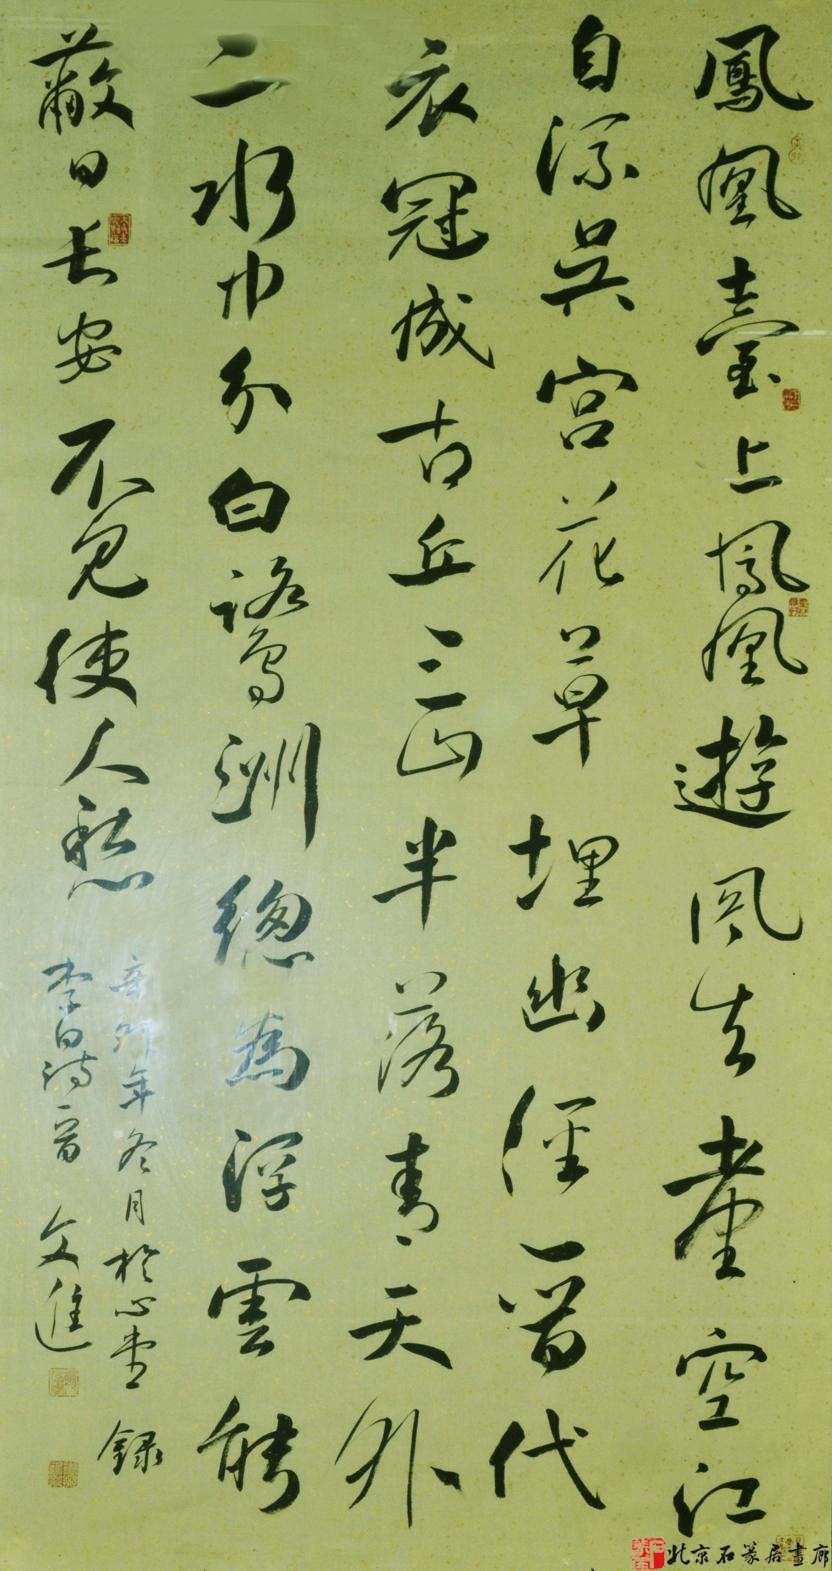 鳳凰臺上鳳凰遊鳳去臺空江
自流吳宮花草埋幽徑晉代
衣冠成古丘三山半落青天外
二水中分白鷺洲總為浮雲能
蔽日長安不見使人愁
辛卯年冬月於心堂錄
李白詩一首 文進
北京石篆居畫廊